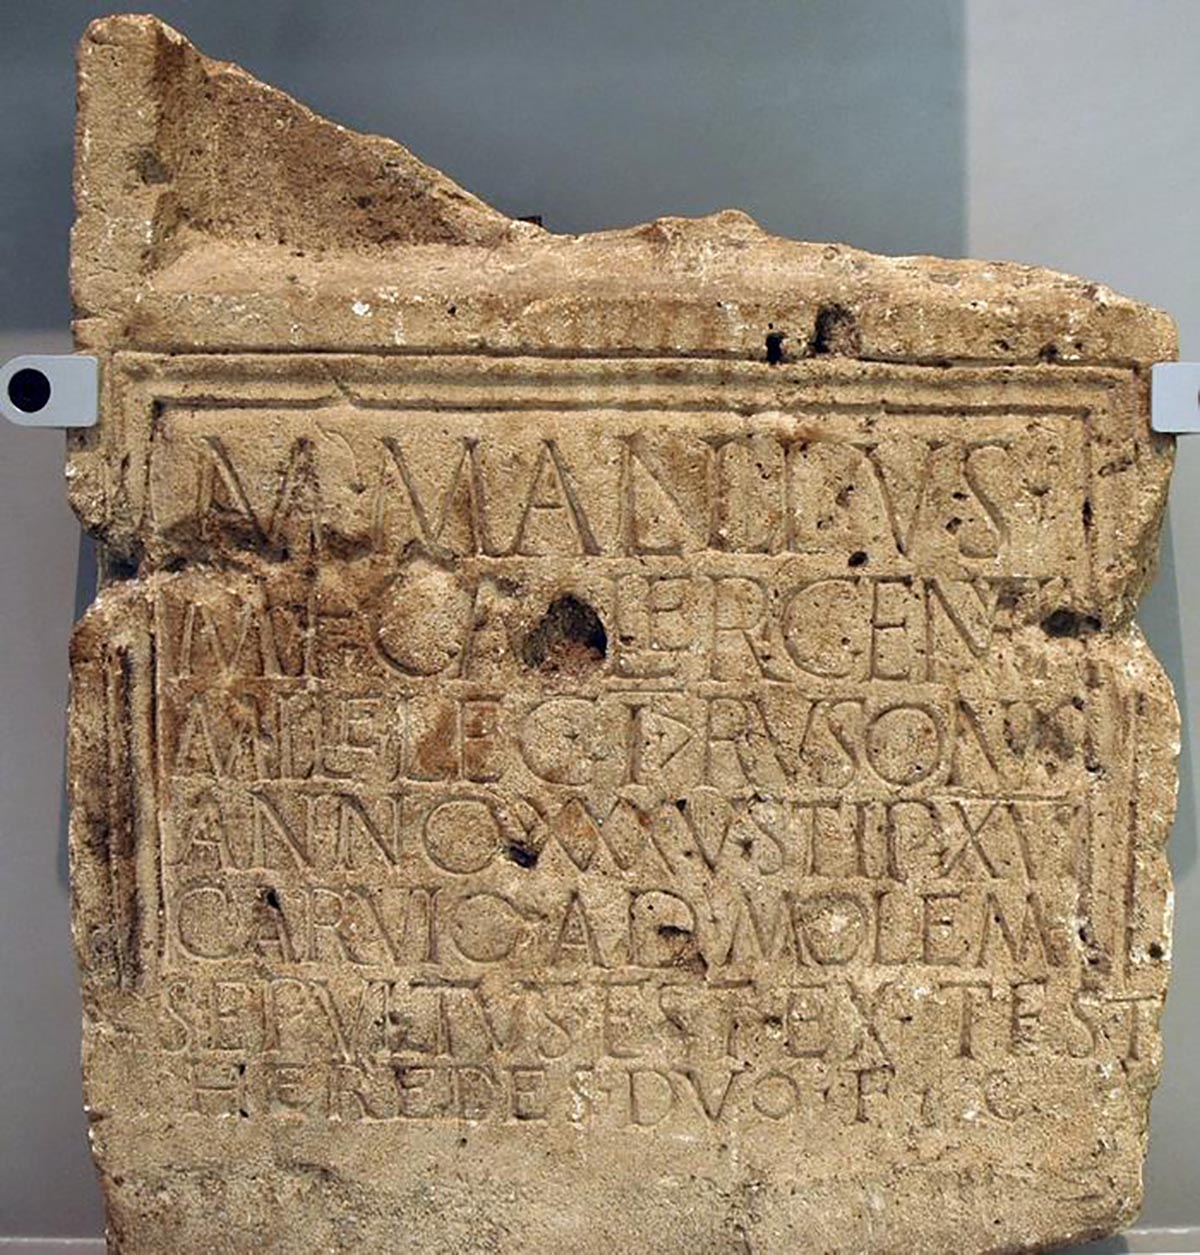 M·MALLIVS·
M·F·GALER·GENVA
MILES·LEG·I·Ↄ·RVSONIS
ANNO·XXXV·STIP·XVI
CARVIO·AD·MOLEM
SEPVLTVS·EST·EX·TEST
HEREDES·DVO·F·C